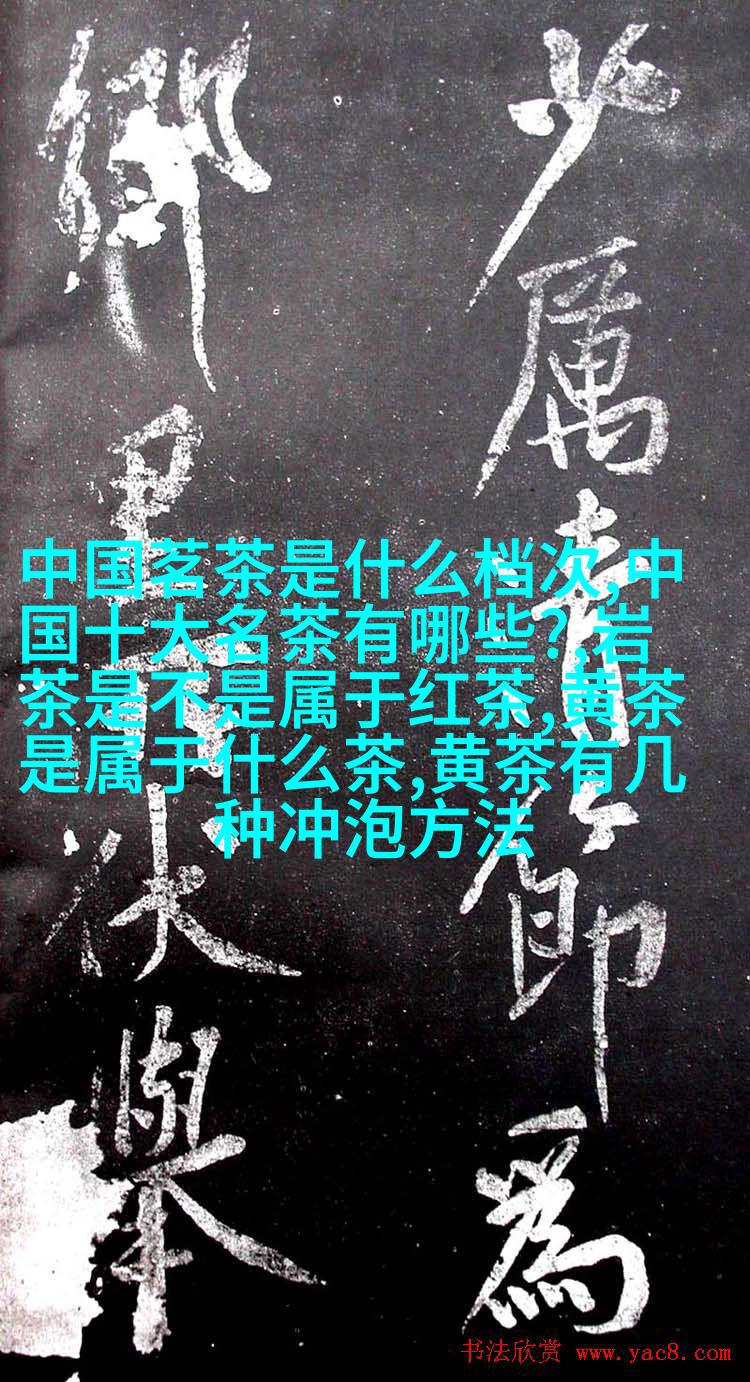 少厲清節為
鄉里所伏舉
中国茗茶是什么档次,中
国十大名茶有哪些?,岩
茶是不是属于红茶,黄茶
是属于什么茶,黄茶有几
种冲泡方法
书法欣赏 www.yac8.com